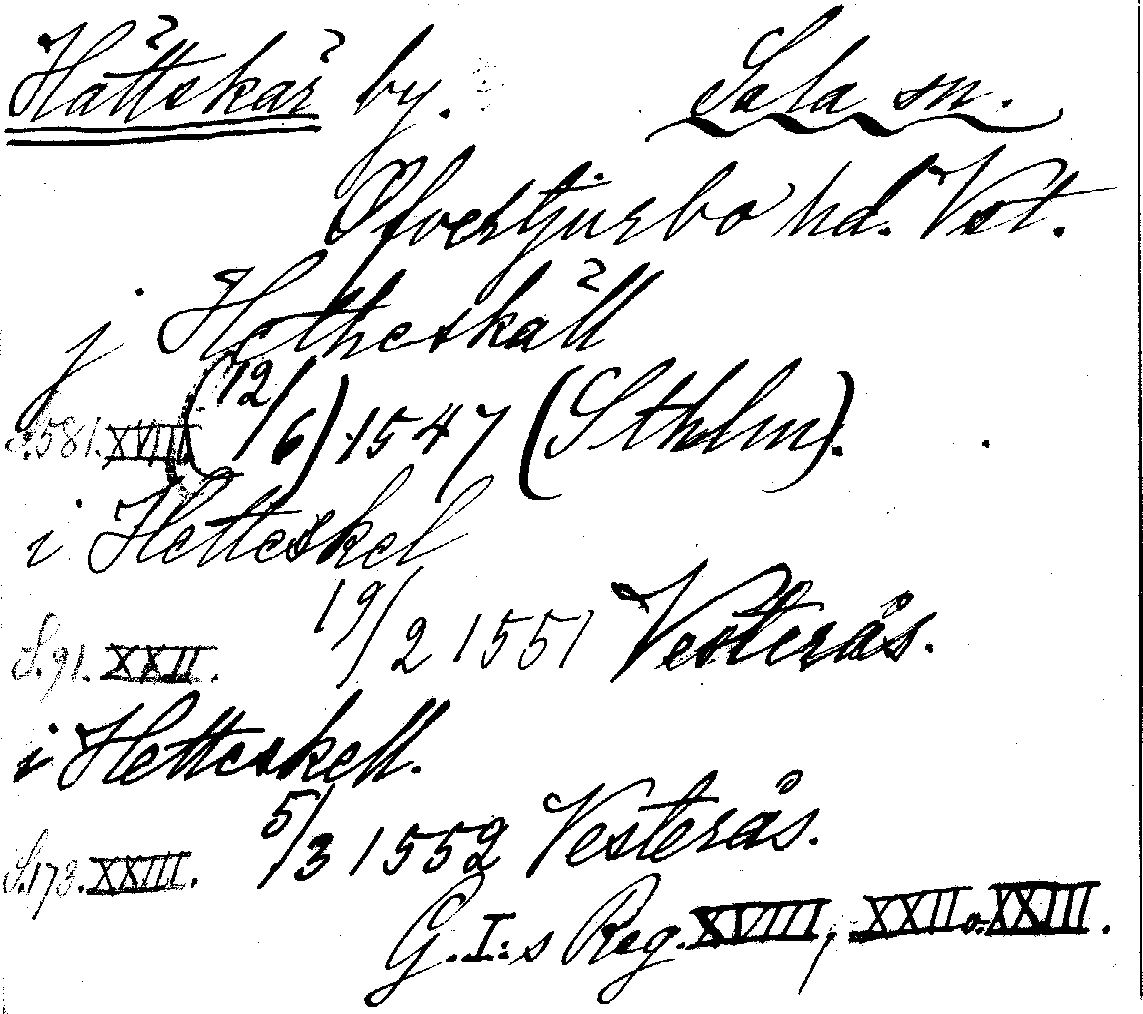 Hättskär by. Sala sn.
Öfvertjurbo hd. Vst.
j Hetheskäll
S.581. XVIII (12/6) 1547 (Sthlm).
i Hetteskel
S.91. XXII. 19/2 1551 Vesterås.
i Hetteskell.
S.173. XXIII. 5/3 1552 Vesterås.
G.I:s Reg. XVIII, XXII o. XXIII.